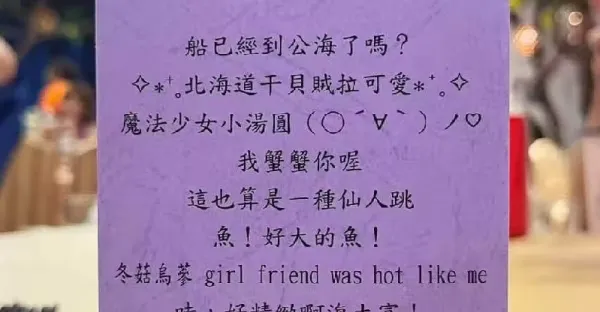 船已經到公海了嗎？
✧*⁺˳北海道干貝賊拉可愛*⁺˳✧
魔法少女小湯圓（◯ˊ∀ˋ）ノ♡
我蟹蟹你喔
這也算是一種仙人跳
魚！好大的魚！
冬菇烏蔘 girl friend was hot like me
哇，好精緻啊